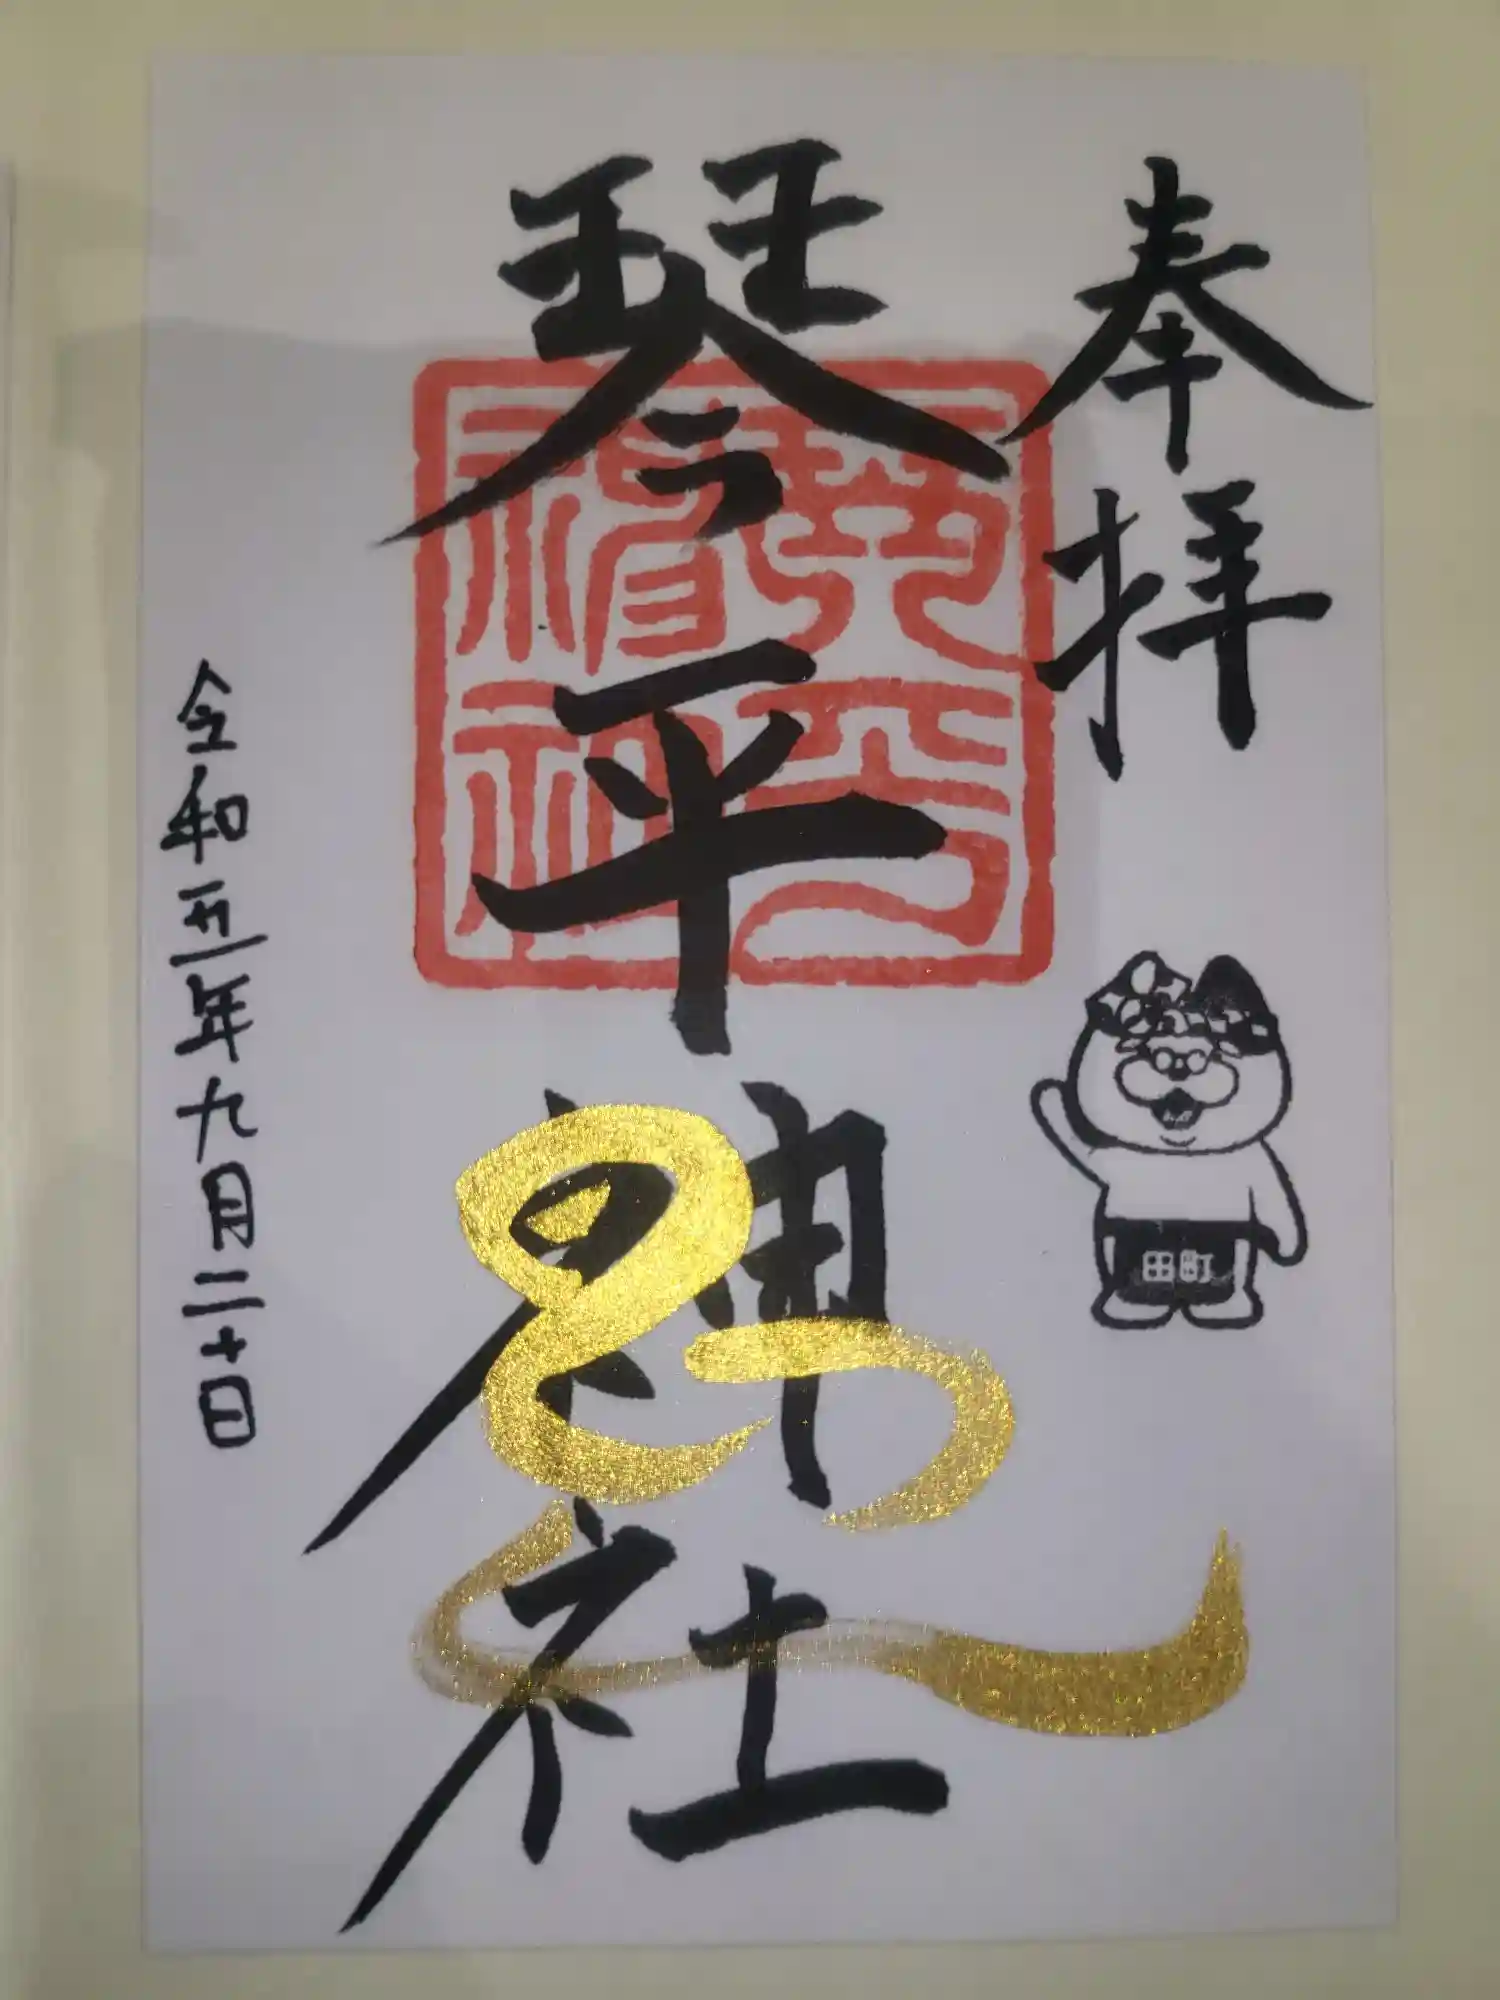 奉拝
琴平神社
田町
令和五年九月二十日